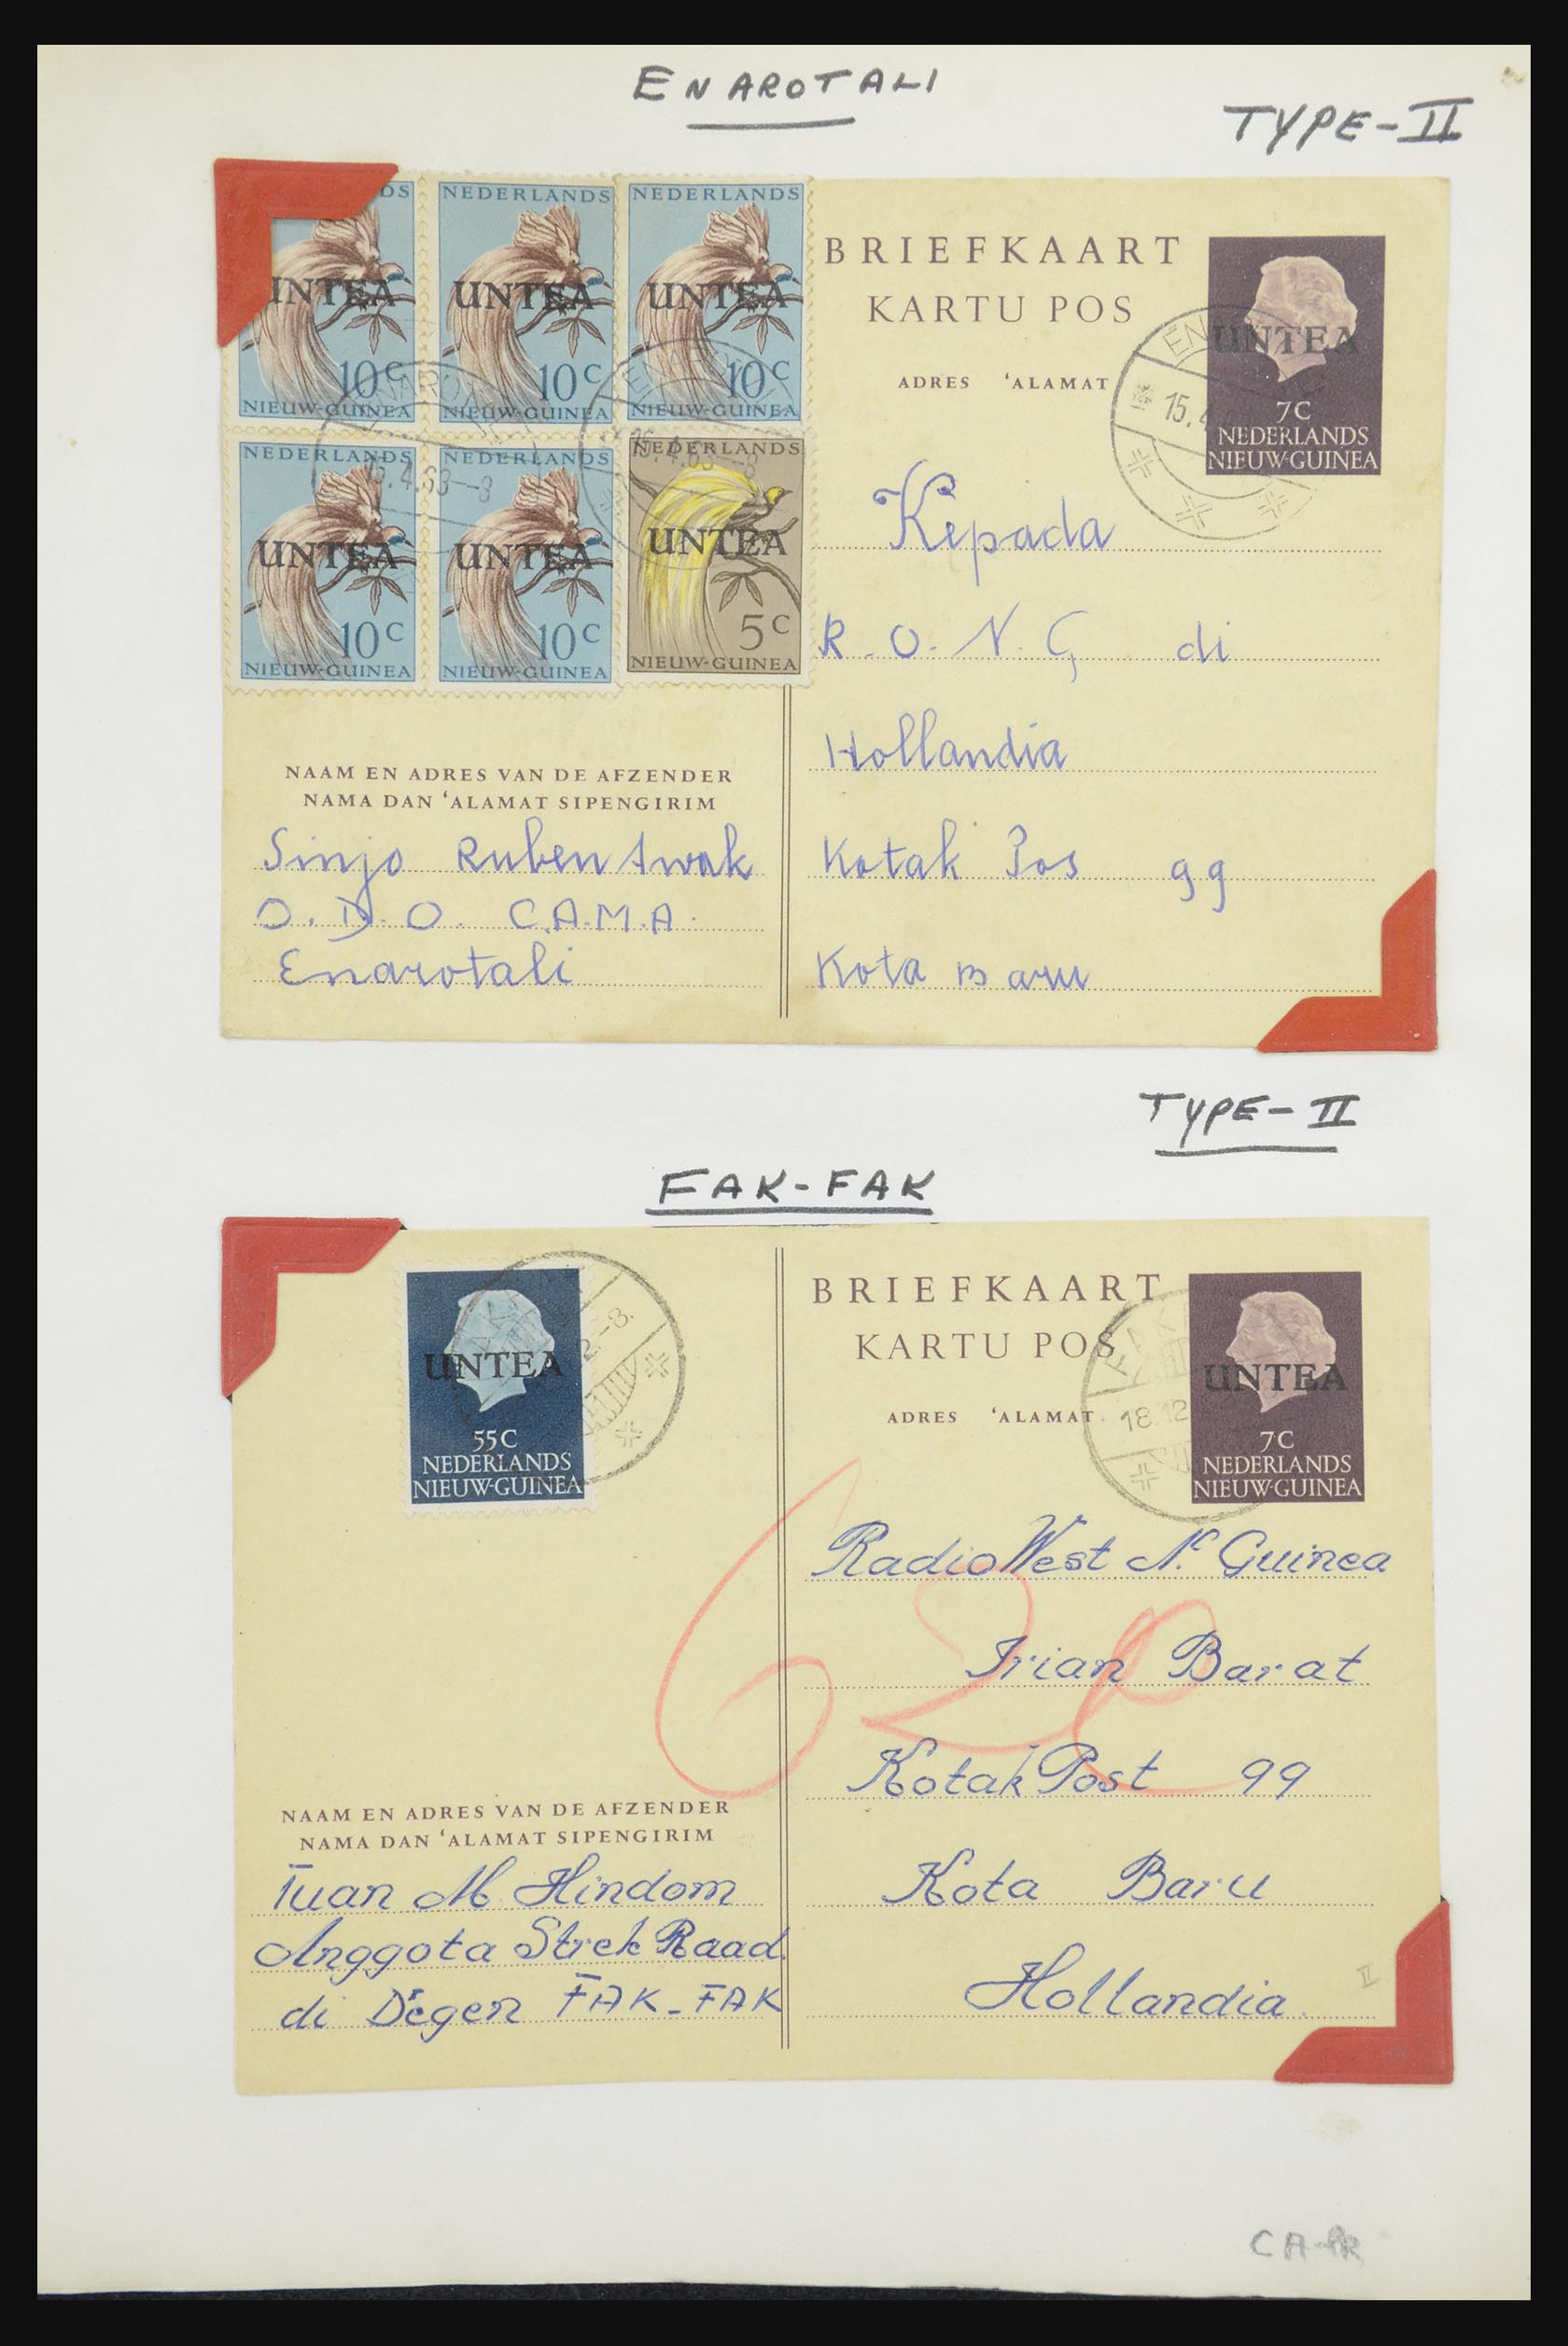 ENAROTALI
TYPE-II
NEDERLANDS
UNTEA
10C
NIEUW-GUINEA
NEDERLANDS
UNTEA
10C
NIEUW-GUINEA
NEDERLANDS
UNTEA
10C
NIEUW-GUINEA
NEDERLANDS
UNTEA
10C
NIEUW-GUINEA
NEDERLANDS
UNTEA
10C
NIEUW-GUINEA
NEDERLANDS
UNTEA
5C
NIEUW-GUINEA
15.4.63-8
15.4.63-8
BRIEFKAART
KARTU POS
ADRES 'ALAMAT
UNTEA
7C
NEDERLANDS
NIEUW-GUINEA
15.4
Kepada
R.O.N.G, di
Hollandia
Kotak Pos 99
Kota Baru
NAAM EN ADRES VAN DE AFZENDER
NAMA DAN 'ALAMAT SIPENGIRIM
Sinjo Ruben Awak
O.D.O. C.A.M.A.
Enarotali
TYPE-II
FAK-FAK
UNTEA
55C
NEDERLANDS
NIEUW-GUINEA
BRIEFKAART
KARTU POS
ADRES 'ALAMAT
UNTEA
7C
NEDERLANDS
NIEUW-GUINEA
18.12
Radio West N. Guinea
Irian Barat
Kotak Post 99
Kota Baru
Hollandia.
II
NAAM EN ADRES VAN DE AFZENDER
NAMA DAN 'ALAMAT SIPENGIRIM
Tuan M. Hindom
Anggota Strek Raad.
di Degen FAK-FAK